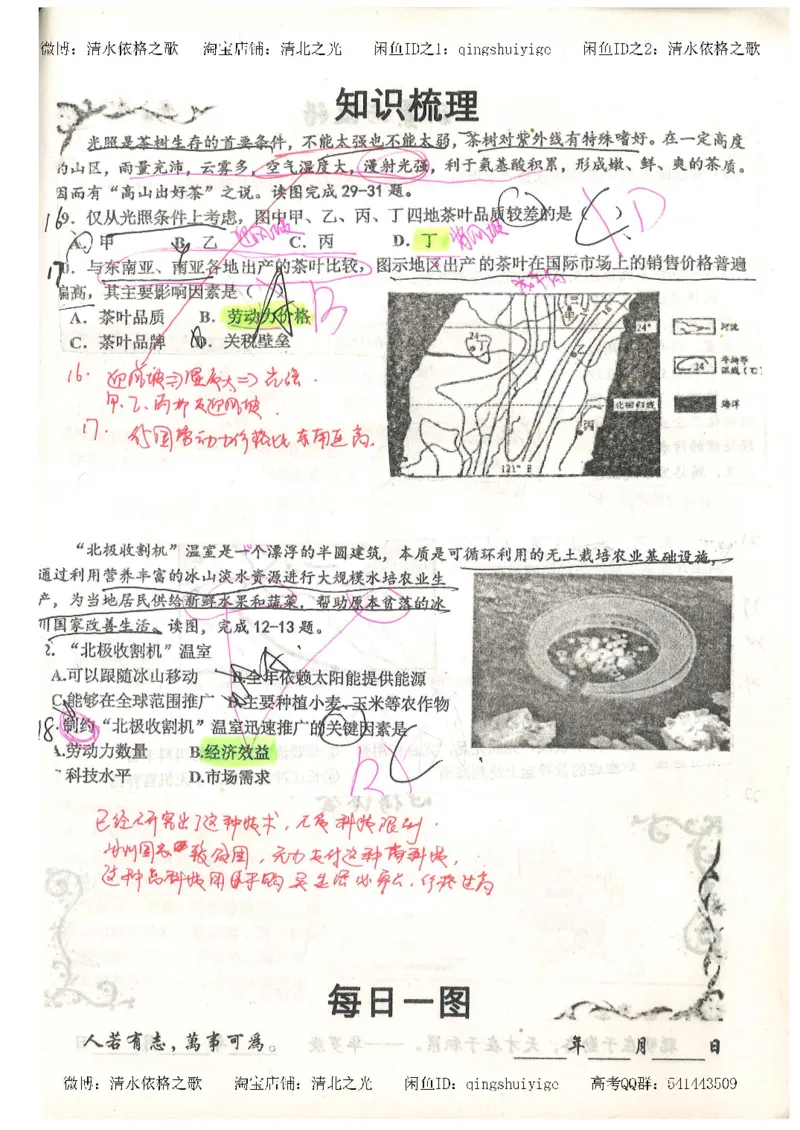 微博：清水依格之歌 淘宝店铺：清北之光 闲鱼ID之1：qingshuiyige 闲鱼ID之2：清水依格之歌
知识梳理
光照是茶树生存的首要条件，不能太强也不能太弱，茶树对紫外线有特殊嗜好。在一定高度
的山区，雨量充沛，云雾多，空气湿度大，漫射光强，利于氨基酸积累，形成嫩、鲜、爽的茶质。
因而有“高山出好茶”之说。读图完成29-31题。
16 9．仅从光照条件上考虑，图中甲、乙、丙、丁四地茶叶品质较差的是（ ）
A．甲 B．乙 迎风坡 C．丙 D．丁 背风坡
17 0．与东南亚、南亚各地出产的茶叶比较，图示地区出产的茶叶在国际市场上的销售价格普遍
偏高，其主要影响因素是（ ）
A．茶叶品质 B．劳动力价格
C．茶叶品牌 D．关税壁垒
24°
河流
24° 平均等温线（℃）
北回归线 海洋
乙
丙
121°E
16. 迎风坡⇒湿度大⇒光强.
甲、乙、丙都是迎风坡.
17. 代国劳动力价格比东南亚高.
“北极收割机”温室是一个漂浮的半圆建筑，本质是可循环利用的无土栽培农业基础设施，
通过利用营养丰富的冰山淡水资源进行大规模水培农业生
产，为当地居民供给新鲜水果和蔬菜，帮助原本贫落的冰
川国家改善生活。读图，完成12-13题。
2．“北极收割机”温室
A.可以跟随冰山移动 B.全年依赖太阳能提供能源
C.能够在全球范围推广 D.主要种植小麦、玉米等农作物
18．制约“北极收割机”温室迅速推广的关键因素是
A.劳动力数量 B.经济效益
科技水平 D.市场需求
已经研究出了这种技术，不是科技限制.
冰川国家一般贫困，无力支付这种高科技，
这种高科技用于的是生活必需，代价过高
每日一图
人若有志，萬事可爲。 年 月 日
微博：清水依格之歌 淘宝店铺：清北之光 闲鱼ID：qingshuiyige 高考QQ群：541443509